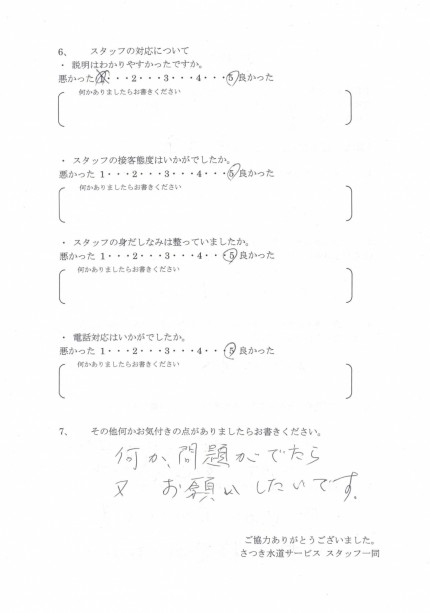 6、 スタッフの対応について
・ 説明はわかりやすかったですか。
悪かった 1・・・2・・・3・・・4・・・5 良かった
何かありましたらお書きください
・ スタッフの接客態度はいかがでしたか。
悪かった 1・・・2・・・3・・・4・・・5 良かった
何かありましたらお書きください
・ スタッフの身だしなみは整っていましたか。
悪かった 1・・・2・・・3・・・4・・・5 良かった
何かありましたらお書きください
・ 電話対応はいかがでしたか。
悪かった 1・・・2・・・3・・・4・・・5 良かった
何かありましたらお書きください
7、 その他何かお気付きの点がありましたらお書きください。
何か、問題がでたら
又 お願いしたいです。
ご協力ありがとうございました。
さつき水道サービス スタッフ一同